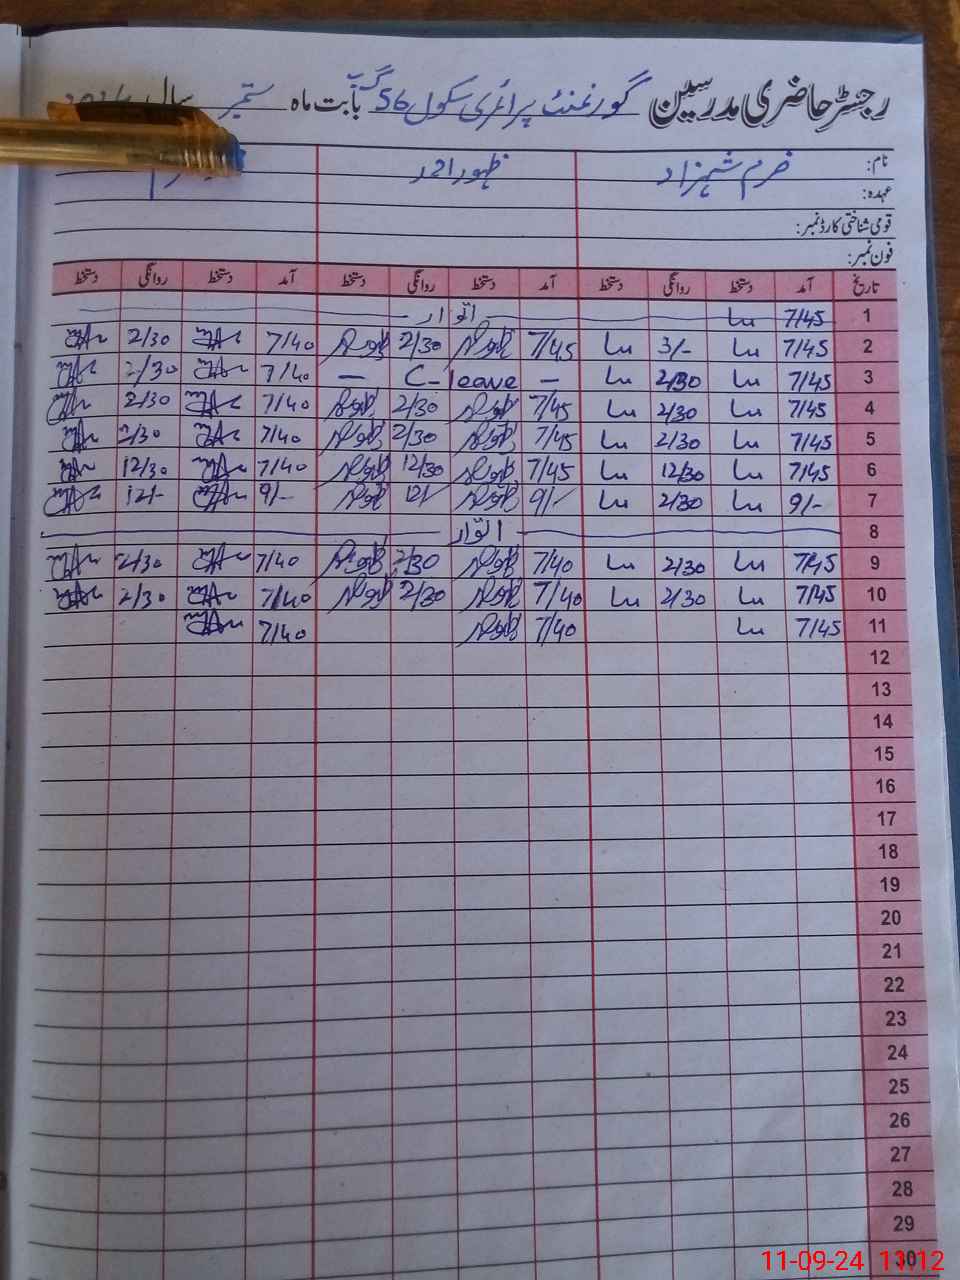 رجسٹر حاضری مدرسین گورنمنٹ پرائمری سکول 56 بابت ماہ ستمبر سال
نام: خرم شہزاد ظہور احمد
عہدہ:
قومی شناختی کارڈ نمبر:
فون نمبر:
تاریخ آمد دستخط روانگی دستخط آمد دستخط روانگی دستخط آمد دستخط روانگی دستخط
1 7/45 اتوار
2 7/45 3/- 7/45 2/30 7/40 2/30
3 7/45 2/30 — C-leave — 7/40 2/30
4 7/45 2/30 7/45 2/30 7/40 2/30
5 7/45 2/30 7/45 2/30 7/40 2/30
6 7/45 12/30 7/45 12/30 7/40 12/30
7 9/- 2/30 9/- 12/ 9/- 12/-
8 اتوار
9 7/45 2/30 7/40 2/30 7/40 2/30
10 7/45 2/30 7/40 2/30 7/40 2/30
11 7/45 7/40 7/40
12
13
14
15
16
17
18
19
20
21
22
23
24
25
26
27
28
29
30
11-09-24 11:12